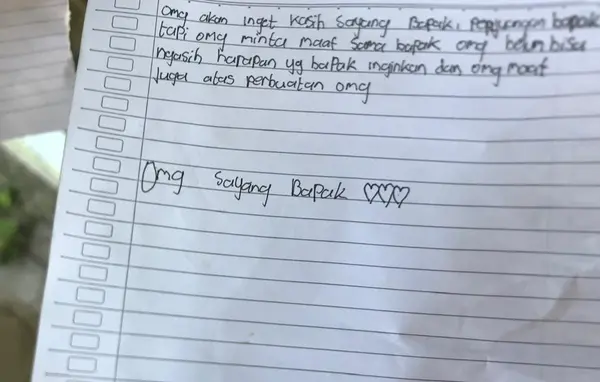 omg akan inget kasih sayang Bapak, perjuangan bapak
tapi omg minta maaf sama bapak omg belum bisa
ngasih harapan yg bapak inginkan dan omg maaf
juga atas perbuatan omg
Omg Sayang Bapak ♡♡♡